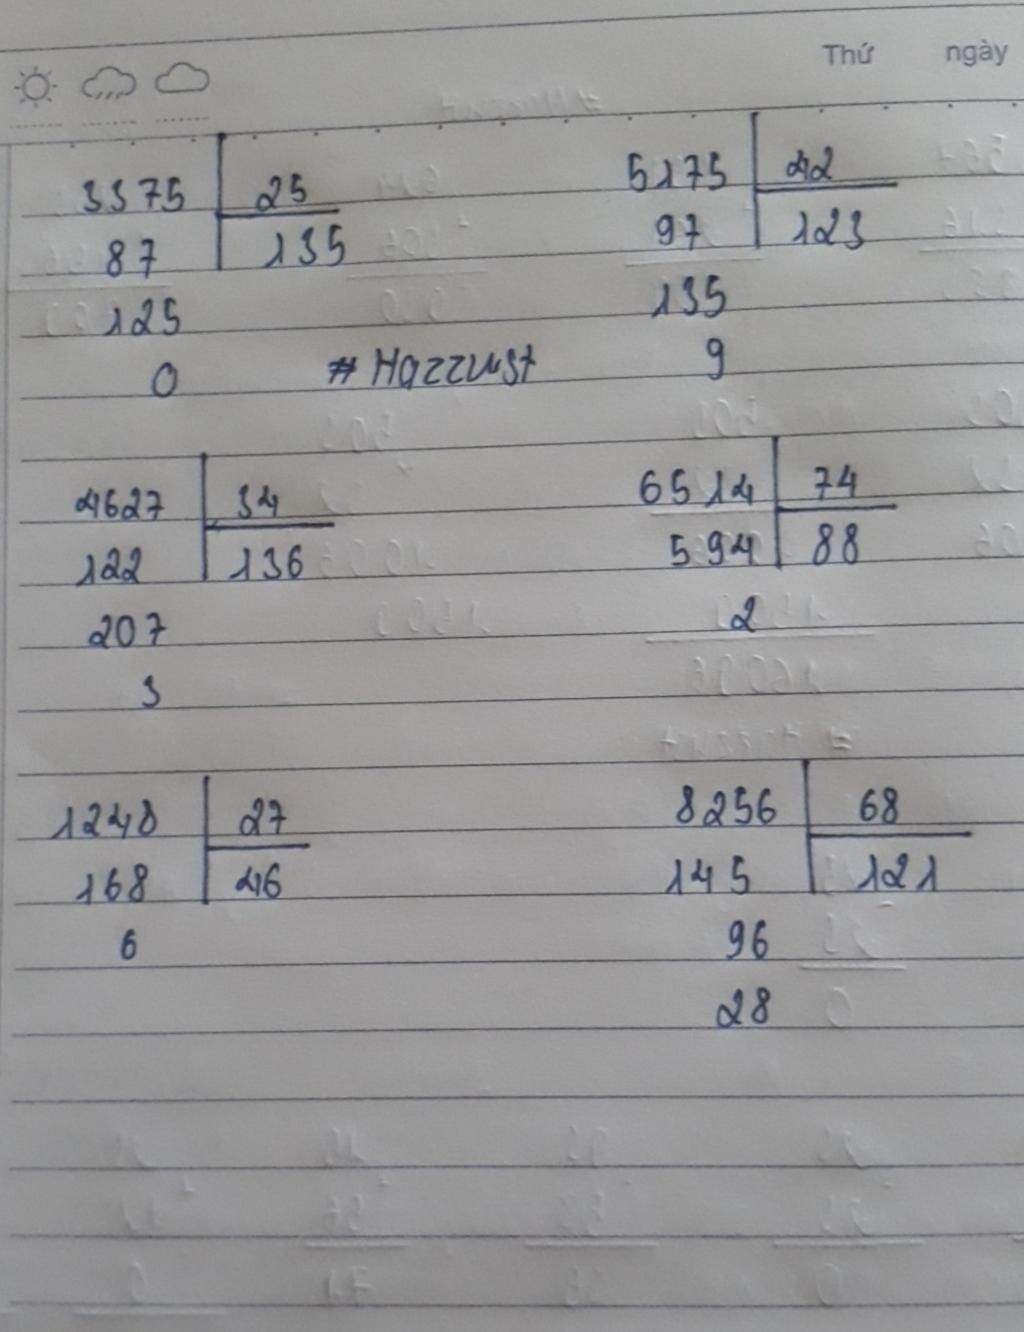 Thứ ngày
3375 25
87 135
125
0
5175 42
97 123
135
9
#Hazzust
4627 34
122 136
207
3
6514 74
594 88
2
1248 27
168 46
6
8256 68
145 121
96
28